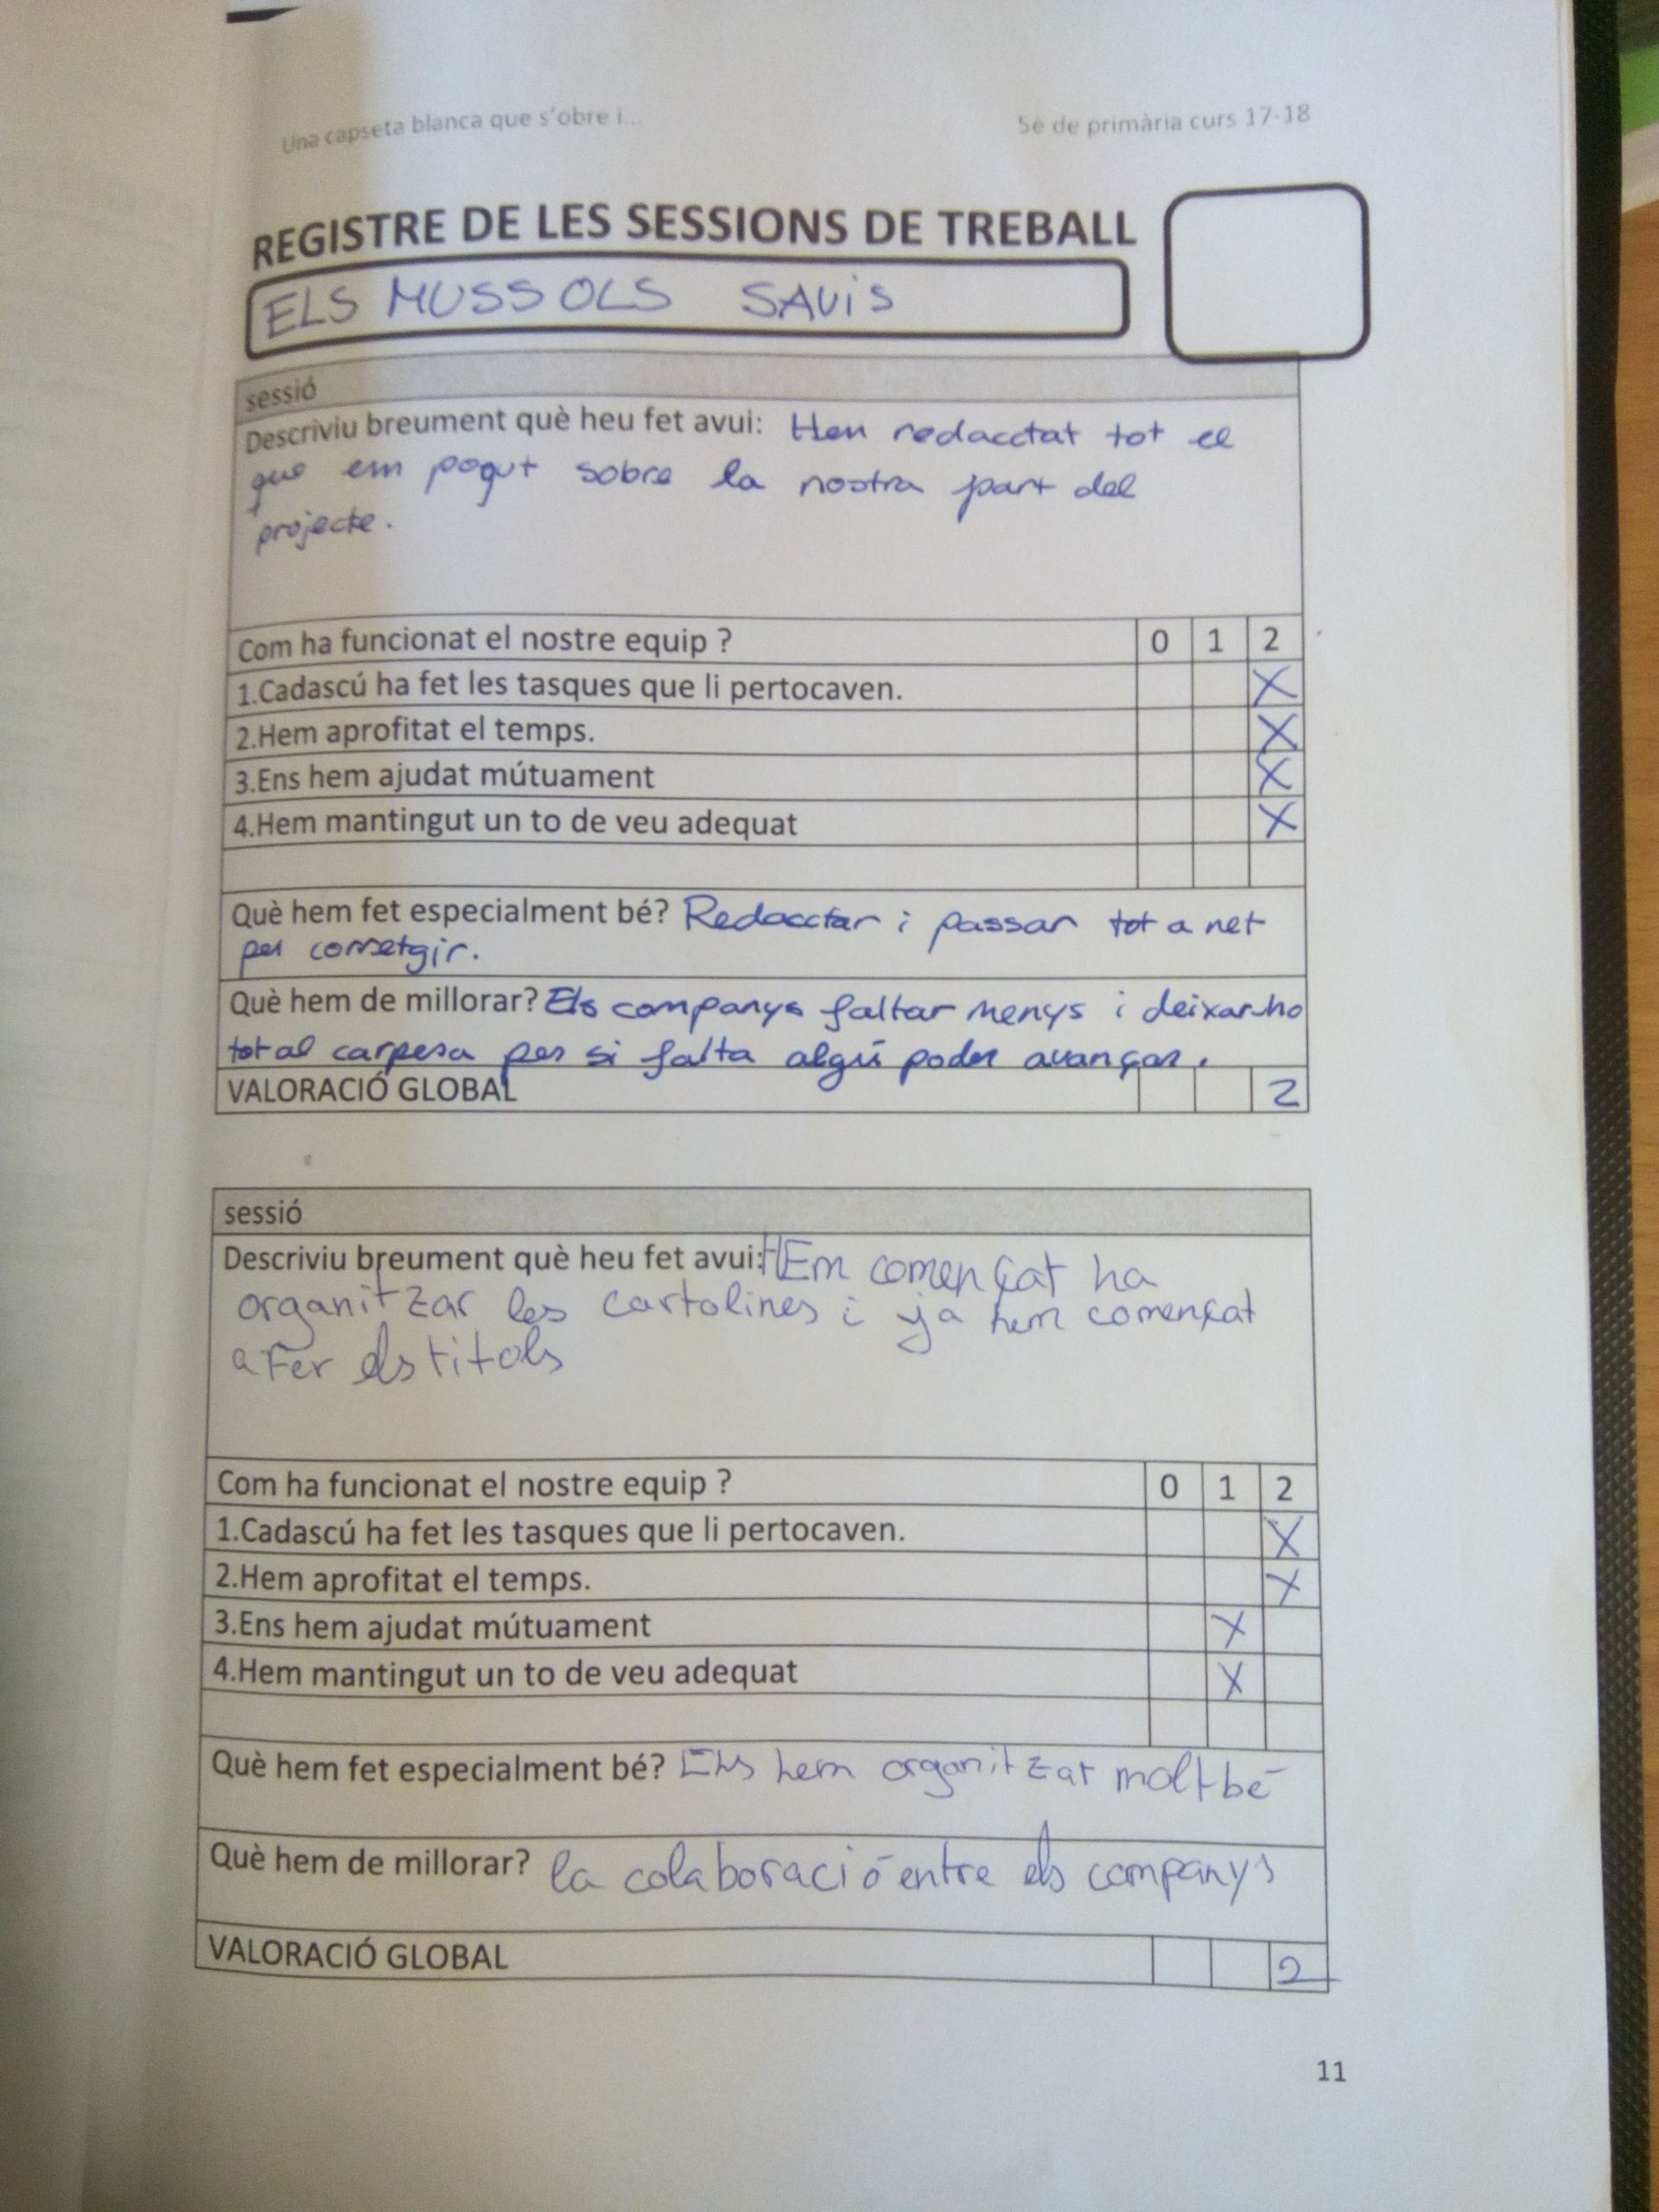 Una capseta blanca que s'obre i... 5è de primària curs 17-18
REGISTRE DE LES SESSIONS DE TREBALL
ELS MUSSOLS SAVIS
sessió
Descriviu breument què heu fet avui: Hem redacctat tot el
que em pogut sobre la nostra part del
projecte.
Com ha funcionat el nostre equip ? 0 1 2
1.Cadascú ha fet les tasques que li pertocaven. X
2.Hem aprofitat el temps. X
3.Ens hem ajudat mútuament X
4.Hem mantingut un to de veu adequat X
Què hem fet especialment bé? Redacctar i passar tot a net
per corretgir.
Què hem de millorar? Els companys faltar menys i deixar-ho
tot al carpesa per si falta algú poder avançar.
VALORACIÓ GLOBAL 2
sessió
Descriviu breument què heu fet avui: HEm començat ha
organitzar les cartolines i ja hem començat
a Fer els titols
Com ha funcionat el nostre equip ? 0 1 2
1.Cadascú ha fet les tasques que li pertocaven. X
2.Hem aprofitat el temps. X
3.Ens hem ajudat mútuament X
4.Hem mantingut un to de veu adequat X
Què hem fet especialment bé? Ens hem organitzat molt bé
Què hem de millorar? la colaboració entre els companys
VALORACIÓ GLOBAL 2
11